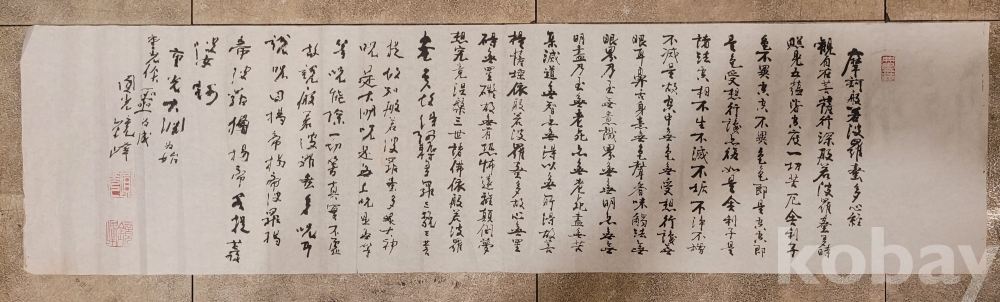 摩訶般若波羅蜜多心經
觀自在菩薩行深般若波羅蜜多時
照見五蘊皆空度一切苦厄舍利子
色不異空空不異色色即是空空即
是色受想行識亦復如是舍利子是
諸法空相不生不滅不垢不淨不增
不減是故空中無色無受想行識無
眼耳鼻舌身意無色聲香味觸法無
眼界乃至無意識界無無明亦無無
明盡乃至無老死亦無老死盡無苦
集滅道無智亦無得以無所得故菩
提薩埵依般若波羅蜜多故心無罣
礙無罣礙故無有恐怖遠離顛倒夢
想究竟涅槃三世諸佛依般若波羅
蜜多故得阿耨多羅三藐三菩
提故知般若波羅蜜多是大神
呪是大明呪是無上呪是無等
等呪能除一切苦真實不虛
故說般若波羅蜜多呪即
說呪曰揭帝揭帝波羅揭
帝波羅僧揭帝菩提
婆訶
大淵
圓光鏡峰
kobay